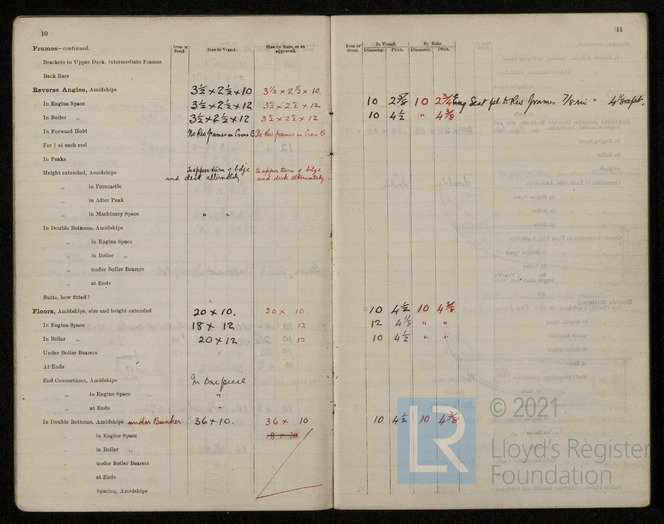 10
Frames—continued.
Iron or Steel.
Size in Vessel.
Size by Rule, or as approved.
Brackets to Upper Deck, intermediate Frames
Back Bars
Reverse Angles, Amidships 3½ × 2½ × 10 3½ × 2½ × 10
In Engine Space 3½ × 2½ × 12 3½ × 2½ × 12
In Boiler „ 3½ × 2½ × 12 3½ × 2½ × 12
In Forward Hold No Rev frames in Cross B No Rev frames in Cross B
For ⅕ at each end
In Peaks
Height extended, Amidships To upper turn of bilge and deck alternately To upper turn of bilge and deck alternately
„ in Forecastle
„ in After Peak
„ in Machinery Space „ „
In Double Bottoms, Amidships
„ in Engine Space
„ in Boiler „
„ under Boiler Bearers
„ at Ends
Butts, how fitted?
Floors, Amidships, size and height extended 20 × 10. 20 × 10
In Engine Space 18 × 12 12
In Boiler „ 20 × 12 12
Under Boiler Bearers
At Ends
End Connections, Amidships In one piece
„ in Engine Space „
„ at Ends
In Double Bottoms, Amidships under Bunker 36 × 10. 36 × 10
„ in Engine Space
„ in Boiler „
„ under Boiler Bearers
„ at Ends
Spacing, Amidships
11
Iron or Steel.
In Vessel.
By Rule.
Diameter. Pitch. Diameter. Pitch.
10 10 Eng Seat pl to Rev frames 7/8 riv
10 4½ „ 4⅜
10 4½ 10 4⅜
12 4⅛ „ „
10 4½ „ „
10 4½ 10 4⅜
LR
© 2021
Lloyd's Register
Foundation